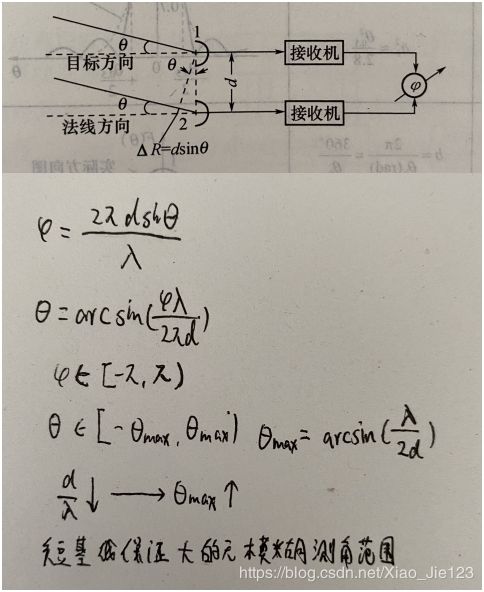 θ 1
目标方向 θ 接收机
d φ
θ 2 接收机
法线方向
ΔR=dsinθ
φ = 2π d sinθ / λ
θ = arcsin(φλ / 2πd)
φ ∈ [-π, π)
θ ∈ [-θmax, θmax) θmax = arcsin(λ / 2d)
d/λ ↓ ⟶ θmax ↑
短基线保证大的无模糊测角范围
https://blog.csdn.net/Xiao_Jie123